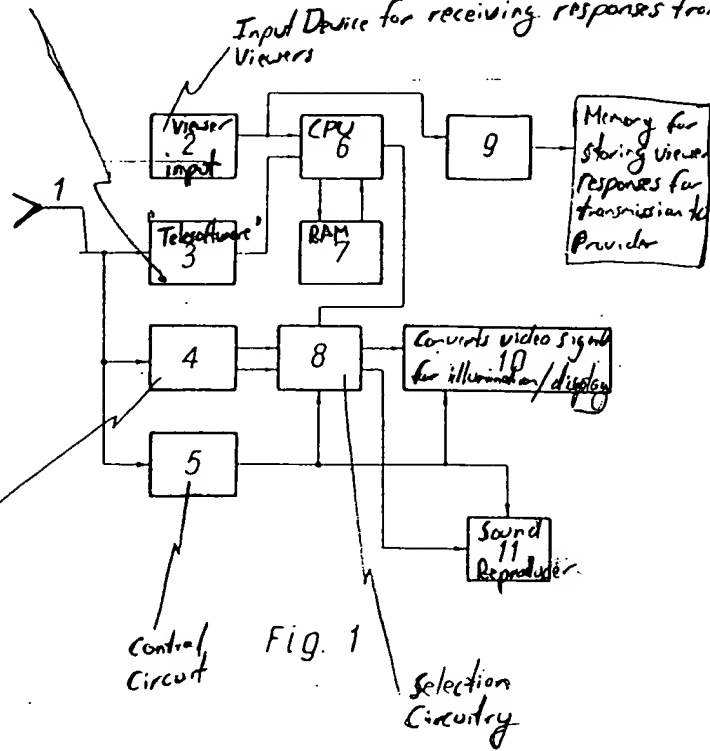 Input Device for receiving responses from
Viewers
Viewer
2
input
CPU
6
9
Memory for
storing viewer
responses for
transmission to
Provider
1
"Telesoftware"
3
RAM
7
4
8
Converts video signal
10
for illumination/display
5
Sound
11
Reproducer
Control
Circuit
Fig. 1
Selection
Circuitry